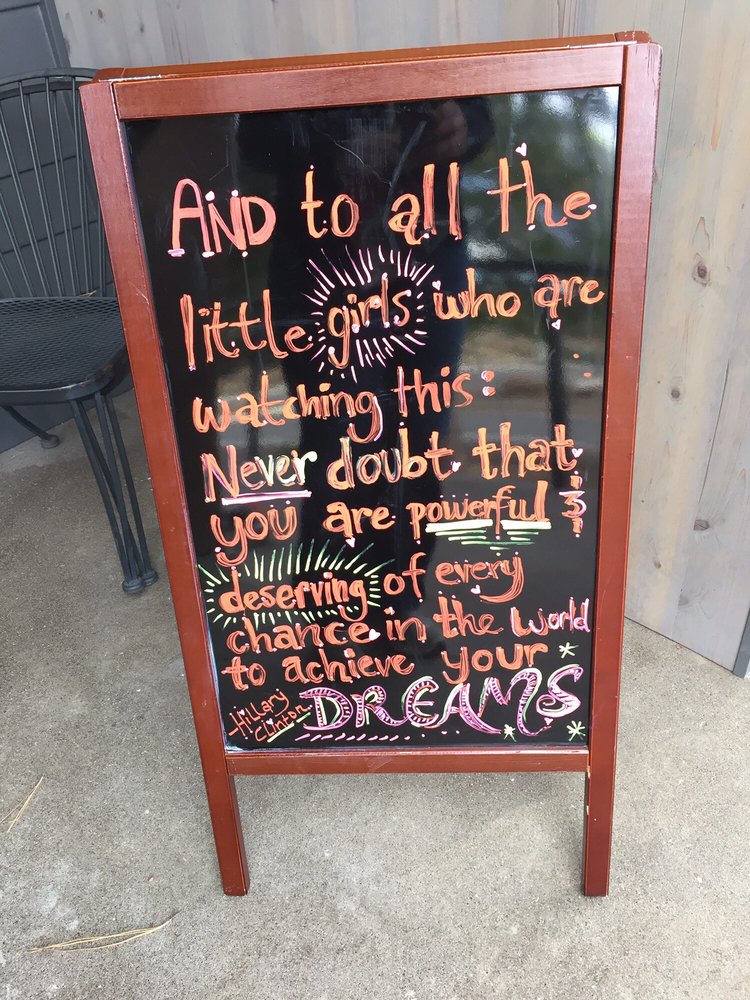 AND to all the
little girls who are
watching this:
Never doubt that
you are powerful &
deserving of every
chance in the world
to achieve your
DREAMS
-Hillary
Clinton